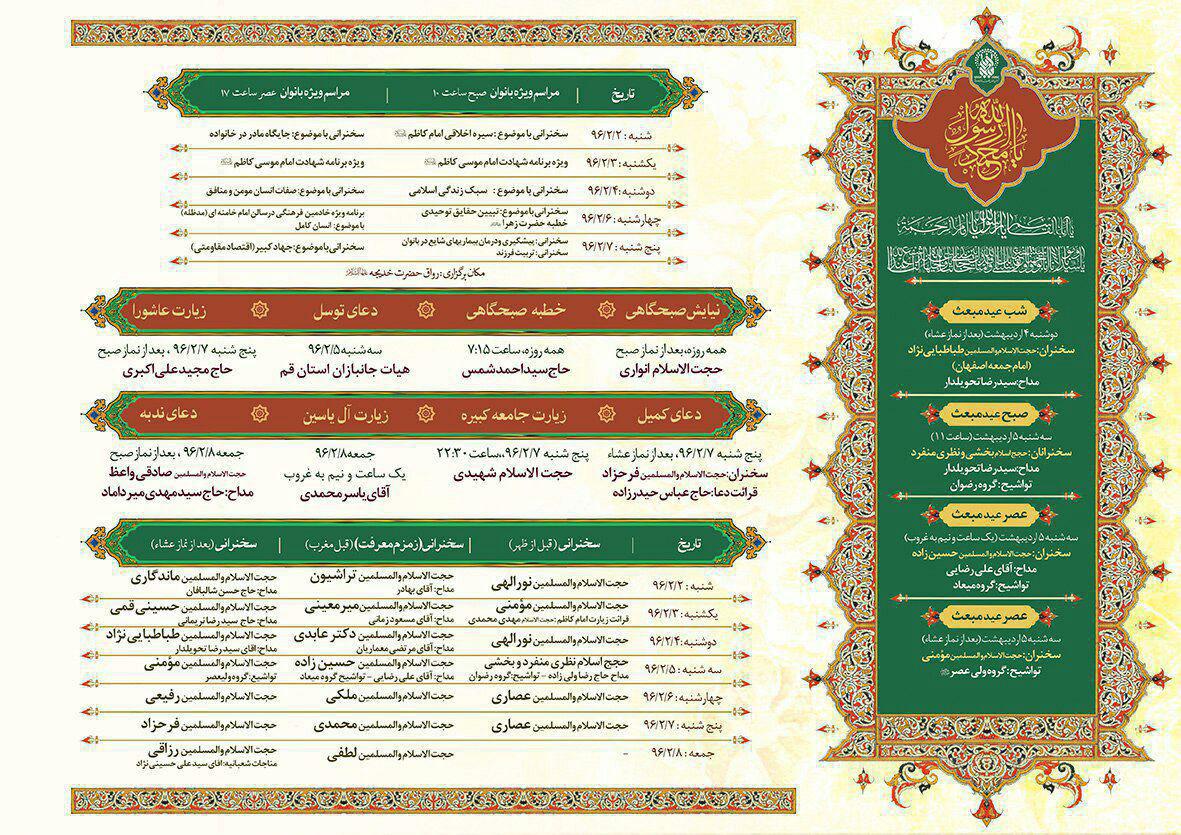 یا رسول الله
یا محمد
شب عید مبعث
دوشنبه ۴ اردیبهشت (بعد از نماز عشاء)
سخنران: حجت الاسلام والمسلمین طباطبایی نژاد
(امام جمعه اصفهان)
مداح: سیدرضا تحویلدار
صبح عید مبعث
سه شنبه ۵ اردیبهشت (ساعت ۱۱)
سخنرانان: حجج اسلام بخشی و نظری منفرد
مداح: سیدرضا تحویلدار
تواشیح: گروه رضوان
عصر عید مبعث
سه شنبه ۵ اردیبهشت (یک ساعت و نیم به غروب)
سخنران: حجت الاسلام والمسلمین حسین زاده
مداح: آقای علی رضایی
تواشیح: گروه میعاد
عصر عید مبعث
سه شنبه ۵ اردیبهشت (بعد از نماز عشاء)
سخنران: حجت الاسلام والمسلمین مؤمنی
تواشیح: گروه ولی عصر
تاریخ | مراسم ویژه بانوان صبح ساعت ۱۰ | مراسم ویژه بانوان عصر ساعت ۱۷
شنبه: ۹۶/۲/۲ سخنرانی با موضوع: سیره اخلاقی امام کاظم سخنرانی با موضوع: جایگاه مادر در خانواده
یکشنبه: ۹۶/۲/۳ ویژه برنامه شهادت امام موسی کاظم ویژه برنامه شهادت امام موسی کاظم
دوشنبه: ۹۶/۲/۴ سخنرانی با موضوع: سبک زندگی اسلامی سخنرانی با موضوع: صفات انسان مومن و منافق
چهارشنبه: ۹۶/۲/۶ سخنرانی با موضوع: تبیین حقایق توحیدی برنامه ویژه خادمین فرهنگی درسالن امام خامنه ای (مدظله)
خطبه حضرت زهرا با موضوع: انسان کامل
پنج شنبه: ۹۶/۲/۷ سخنرانی: پیشگیری و درمان بیماریهای شایع در بانوان سخنرانی با موضوع: جهاد کبیر (اقتصاد مقاومتی)
سخنرانی: تربیت فرزند
مکان برگزاری: رواق حضرت خدیجه
نیایش صبحگاهی خطبه صبحگاهی دعای توسل زیارت عاشورا
همه روزه، بعد از نماز صبح همه روزه، ساعت ۷:۱۵ سه شنبه ۹۶/۲/۵ پنج شنبه ۹۶/۲/۷، بعد از نماز صبح
حجت الاسلام انواری حاج سید احمد شمس هیات جانبازان استان قم حاج مجید علی اکبری
دعای کمیل زیارت جامعه کبیره زیارت آل یاسین دعای ندبه
پنج شنبه ۹۶/۲/۷، بعد از نماز عشاء پنج شنبه ۹۶/۲/۷، ساعت ۲۲:۳۰ جمعه ۹۶/۲/۸ جمعه ۹۶/۲/۸، بعد از نماز صبح
سخنران: حجت الاسلام والمسلمین فرحزاد حجت الاسلام شهیدی یک ساعت و نیم به غروب حجت الاسلام والمسلمین صادقی واعظ
قرائت دعا: حاج عباس حیدرزاده آقای یاسر محمدی مداح: حاج سید مهدی میرداماد
تاریخ | سخنرانی (قبل از ظهر) | سخنرانی (زمزم معرفت) (قبل مغرب) | سخنرانی (بعد از نماز عشاء)
شنبه: ۹۶/۲/۲ حجت الاسلام والمسلمین نورالهی حجت الاسلام والمسلمین تراشیون حجت الاسلام والمسلمین ماندگاری
مداح: آقای بهادر مداح: حاج حسن شالبافان
یکشنبه: ۹۶/۲/۳ حجت الاسلام والمسلمین مؤمنی حجت الاسلام والمسلمین میرمعینی حجت الاسلام والمسلمین حسینی قمی
قرائت زیارت امام کاظم: حجت الاسلام مهدی محمدی مداح: آقای مسعود زمانی مداح: حاج سید رضا نریمانی
دوشنبه: ۹۶/۲/۴ حجت الاسلام والمسلمین نورالهی حجت الاسلام والمسلمین دکتر عابدی حجت الاسلام والمسلمین طباطبایی نژاد
مداح: آقای مرتضی معماریان مداح: اقای سید رضا تحویلدار
سه شنبه: ۹۶/۲/۵ حجج اسلام نظری منفرد و بخشی حجت الاسلام والمسلمین حسین زاده حجت الاسلام والمسلمین مؤمنی
مداح حاج رضا ولی زاده - تواشیح: گروه رضوان مداح: آقای علی رضایی - تواشیح گروه میعاد تواشیح: گروه ولیعصر
چهارشنبه: ۹۶/۲/۶ حجت الاسلام والمسلمین عصاری حجت الاسلام والمسلمین ملکی حجت الاسلام والمسلمین رفیعی
پنج شنبه: ۹۶/۲/۷ حجت الاسلام والمسلمین عصاری حجت الاسلام والمسلمین محمدی حجت الاسلام والمسلمین فرحزاد
جمعه: ۹۶/۲/۸ - حجت الاسلام والمسلمین لطفی حجت الاسلام والمسلمین رزاقی
مناجات شعبانیه: اقای سید علی حسینی نژاد